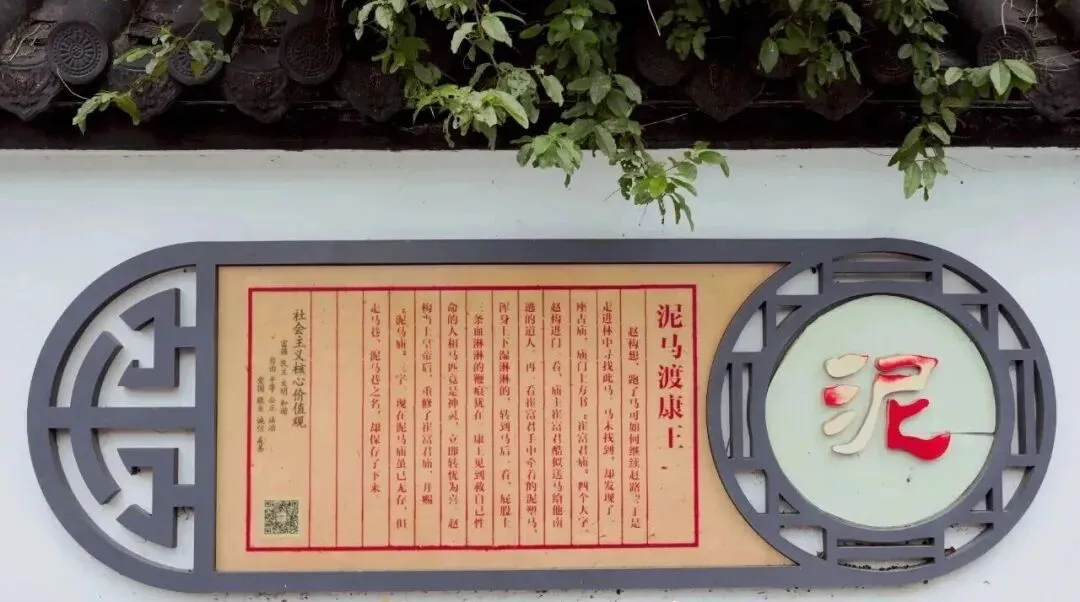 泥马渡康王
赵构想，跑了马可如何继续赶路？于是
走进林中寻找此马。马未找到，却发现了一
座古庙，庙门上方书“崔富君庙”四个大字。
赵构进门一看，庙上崔富君酷似送马给他南
逃的道人，再一看崔富君手中牵着的泥塑马，
浑身上下湿淋淋的，转到马后一看，屁股上
三条血淋淋的鞭痕犹在。康王见到救自己性
命的人和马匹竟是神灵，立即转忧为喜。赵
构当上皇帝后，重修了崔富君庙，并赐
“泥马庙”三字。现在泥马庙虽已无存，但
走马巷、泥马巷之名，却保存了下来。
社会主义核心价值观
富强 民主 文明 和谐
自由 平等 公正 法治
爱国 敬业 诚信 友善
泥